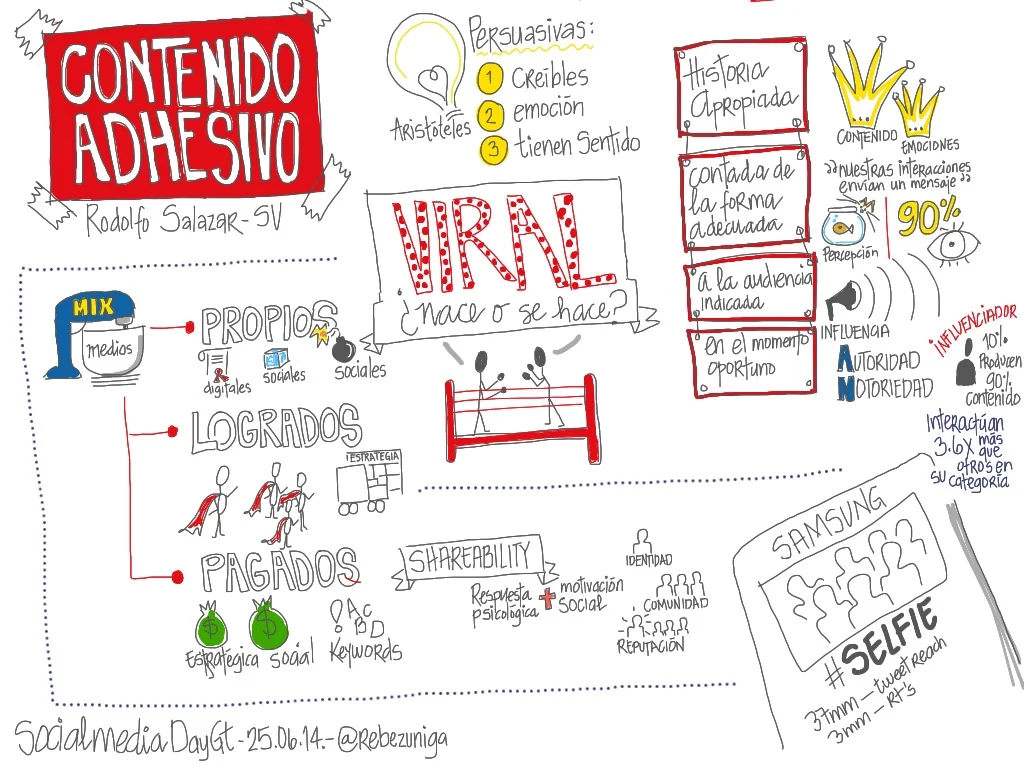 CONTENIDO
ADHESIVO
Rodolfo Salazar-SV
Aristóteles
Persuasivas:
1 Creíbles
2 emoción
3 tienen sentido
VIRAL
¿nace o se hace?
Historia
apropiada
contada de
la forma
adecuada
a la audiencia
indicada
en el momento
oportuno
CONTENIDO
EMOCIONES
nuestras interacciones
envían un mensaje
Percepción
90%
INFLUENCIA
AUTORIDAD
NOTORIEDAD
INFLUENCIADOR
10%
Producen
90%
contenido
Interactúan
3.6x más
que
otro's en
su categoría
MIX
medios
PROPIOS
digitales
sociales
sociales
LOGRADOS
ESTRATEGIA
PAGADOS
$
$
Estratégica social
A c
B D
Keywords
SHAREABILITY
Respuesta
psicológica
+
motivación
social
IDENTIDAD
COMUNIDAD
REPUTACIÓN
SAMSUNG
#SELFIE
37mm – tweetreach
3mm – RT's
SocialmediaDayGt-25.06.14.-@Rebezuniga